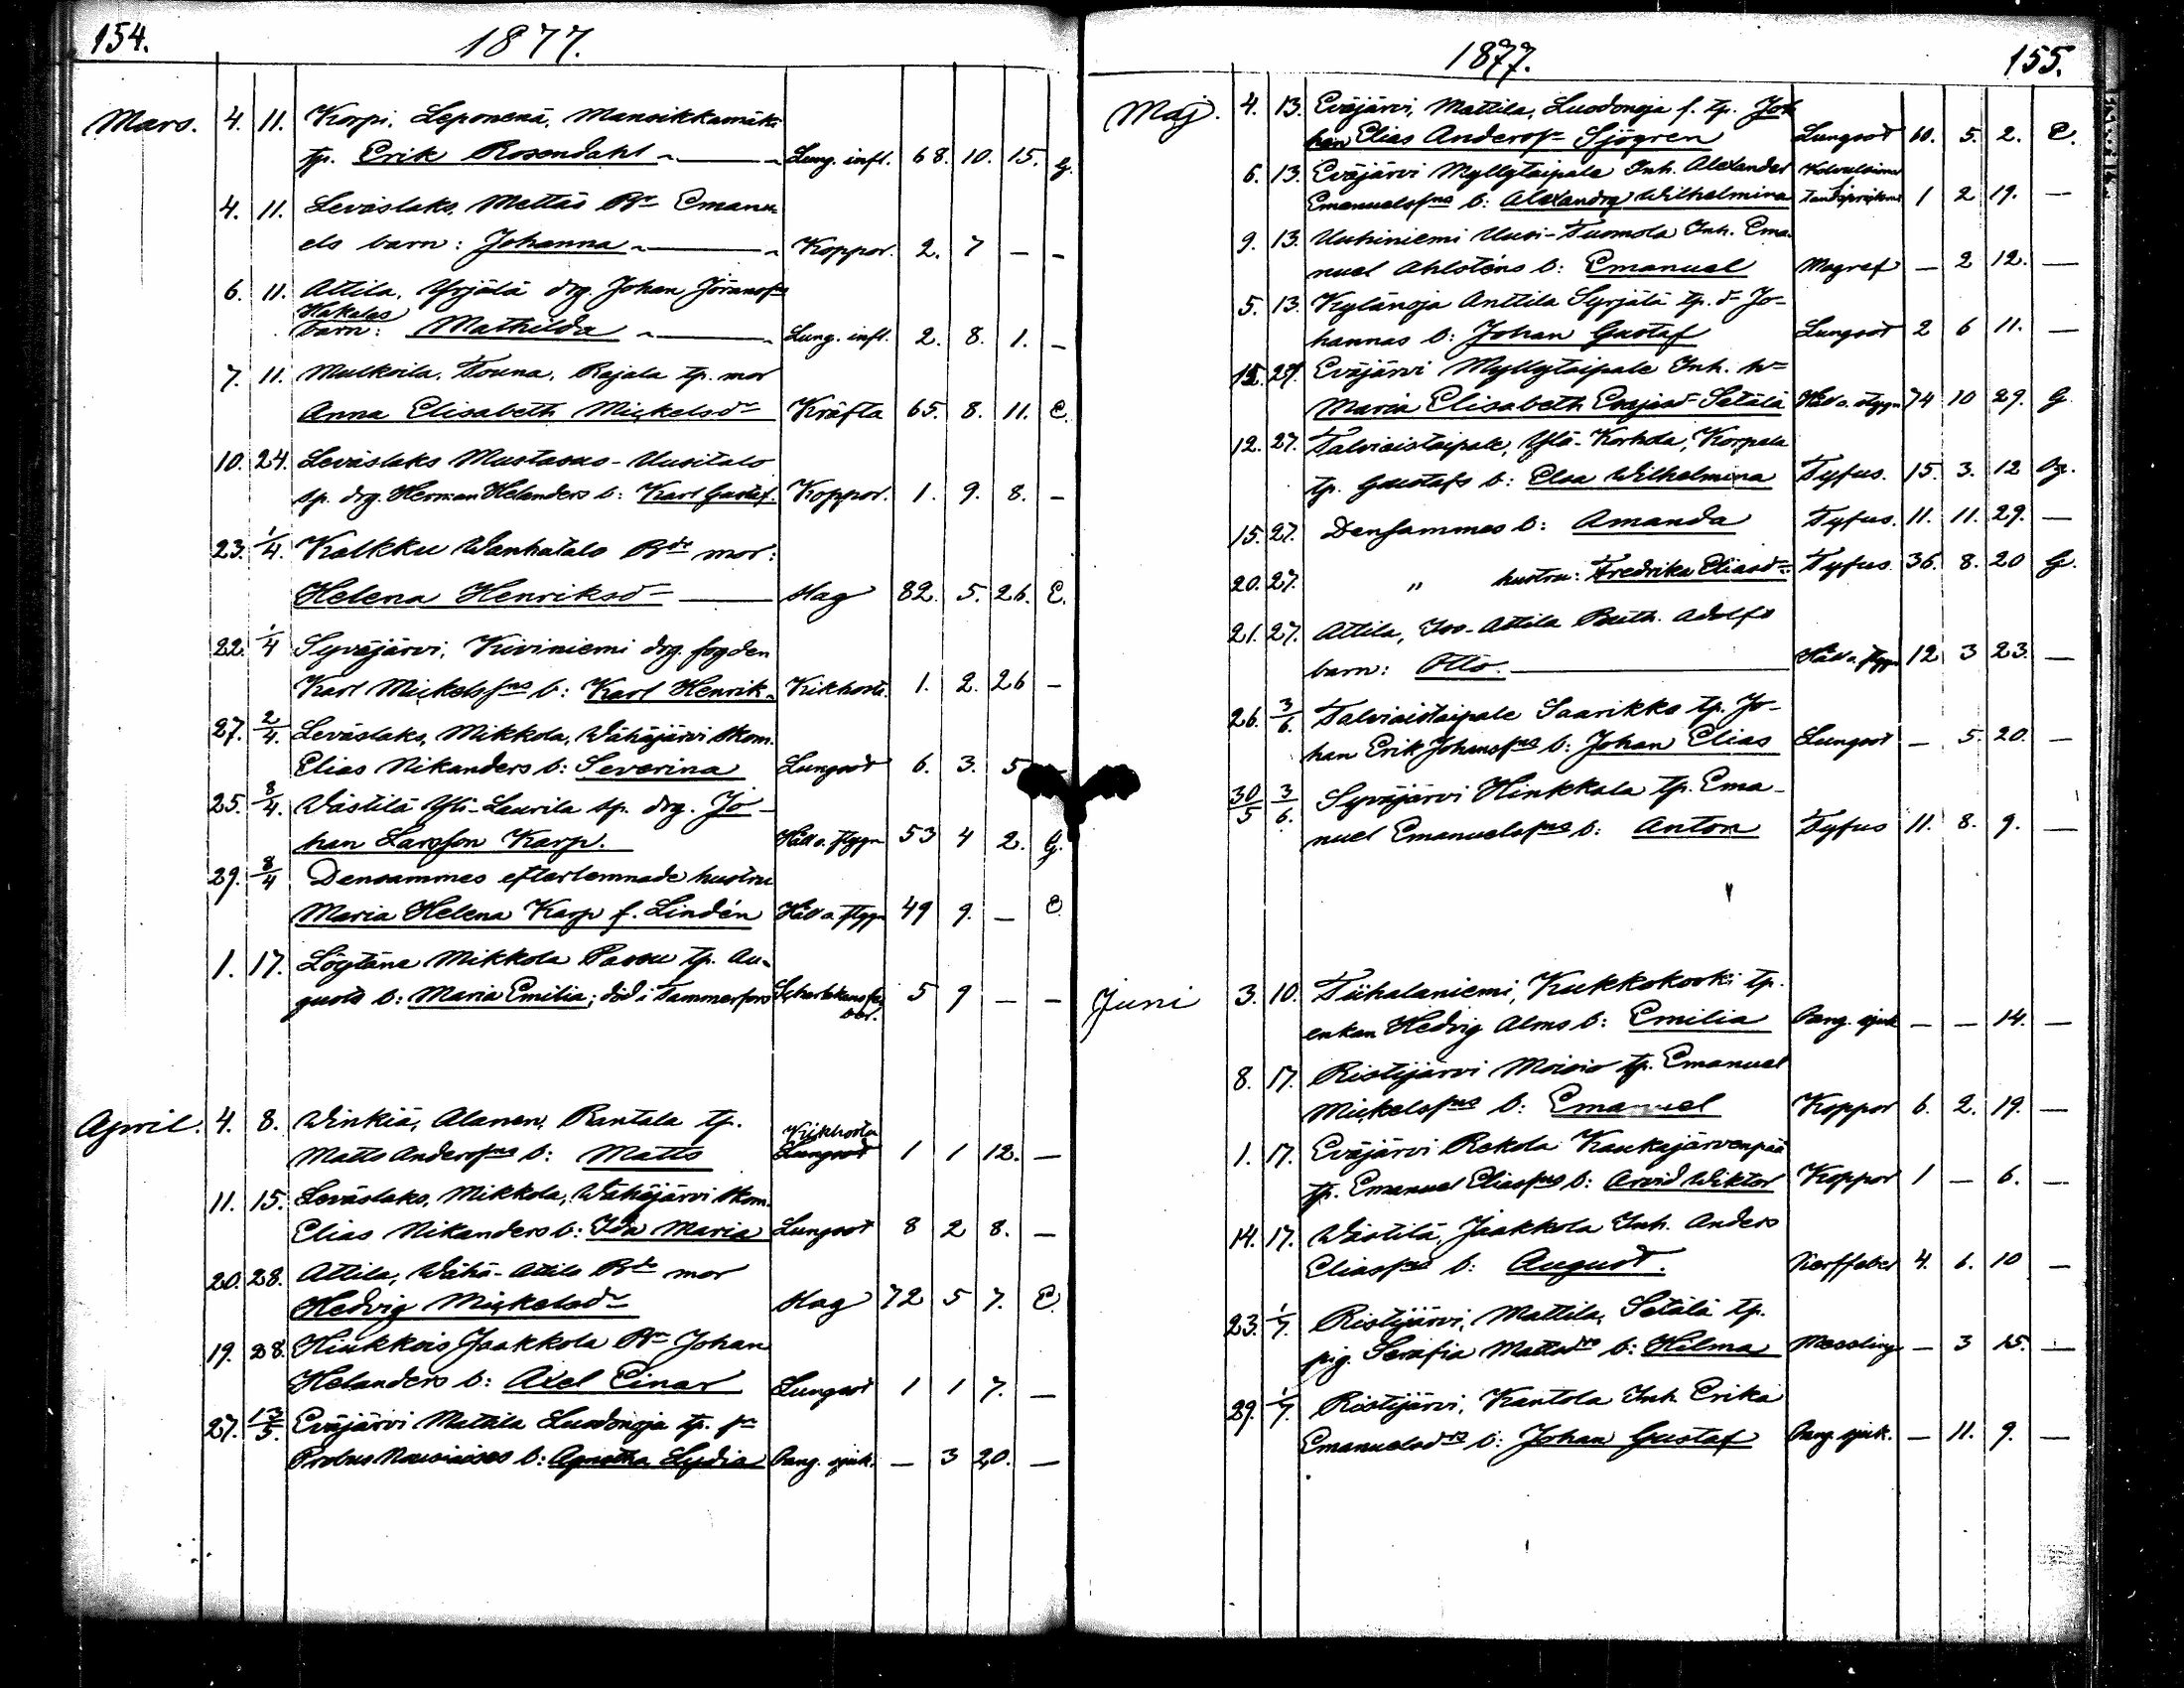 154.
1877.
Mars. 4. 11. Korpi, Leponenä, Mansikkamäki
tp. Erik Rosendahl Lung. infl. 68. 10. 15. G.
4. 11. Leväslaks, Mattas Bn Emanu-
els barn: Johanna Koppor. 2. 7 — —
6. 11. Attila, Yrjälä drg. Johan Göransson
Hakalas
barn: Mathilda Lung. infl. 2. 8. 1. —
7. 11. Mulkoila, Touna, Rajala tp. mor
Anna Elisabeth Mickelsdr Kräfta 65. 8. 11. E.
10. 24. Leväslaks Mustasuo-Uusitalo
sp. drg. Herman Helanders b: Karl Gustaf. Koppor. 1. 9. 8. —
23. 1/4. Kalkku Wanhatalo Bde mor:
Helena Henriksdr Slag 82. 5. 26. E.
22. 1/4 Syväjärvi, Kiviniemi drg. fogden
Karl Mickelssns b: Karl Henrik Kikhosta. 1. 2. 26 —
27. 2/4. Leväslaks, Mikkola, Wähäjärvi skom.
Elias Nikanders b: Severina Lungsot 6. 3. 5
25. 8/4. Wästilä Yli-Laurila sp. drg. Jo-
han Larsson Karp. Håll o. stygn 53 4 2. G.
29. 8/4 Densammes efterlemnade hustru
Maria Helena Karp f. Lindén Håll o. stygn 49 9. — E.
1. 17. Löytäne Mikkola Passu tp. Au-
gusts b: Maria Emilia; död i Tammerfors Scharlakansfe- 5 9 — —
ber.
April. 4. 8. Winkiä, Alanen, Rantala tp.
Kikhosta
Matts Anderssns b: Matts Lungsot 1 1 12. —
11. 15. Leväslaks, Mikkola, Wähäjärvi skom.
Elias Nikanders b: Ida Maria Lungsot 8 2 8. —
20. 28. Attila, Wähä-Attila Bde mor
Hedvig Mickelsdr Slag 72 5 7. E.
19. 28. Hiukkois Jaakkola Bn Johan
Helanders b: Axel Einar Lungsot 1 1 7. —
27. 13/5. Eväjärvi Mattila Luodonoja tp. fn
b: Agnetha Lydia Bang. sjuk. — 3 20. —
1877.
155.
Maj. 4. 13. Eväjärvi, Mattila, Luodonoja f. tp. Joh
han Elias Anderssn Sjögren Lungsot 60. 5. 2. E.
6. 13. Eväjärvi Myllytaipale Inh. Alexander
Emanuelssns b: Alexandra Wilhelmina 1 2 19. —
9. 13. Uuhiniemi Uusi-Tuomola Inh. Ema-
nuel Ahlsténs b: Emanuel Magref — 2 12. —
5. 13. Kylänoja Anttila Syrjälä tp. dr Jo-
hannas b: Johan Gustaf Lungsot 2 6 11. —
15. 27. Eväjärvi Myllytaipale Inh. hu
Maria Elisabeth Setälä Håll o. stygn 74 10 29. G.
12. 27. Talviaistaipale, Ylä-Korkola, Korpala
tp. Gustafs b: Elsa Wilhelmina Tyfus. 15. 3. 12 Og.
15. 27. Densammes b: Amanda Tyfus. 11. 11. 29. —
20. 27. " hustru: Fredrika Eliasdr Tyfus. 36. 8. 20 G.
21. 27. Attila, Iso-Attila Beith. Adolfs
barn: Otto. Håll o. stygn 12 3 23. —
26. 3/6. Talviaistaipale Saarikko tp. Jo-
han Erik Johanssns b: Johan Elias Lungsot — 5. 20. —
30/5 3/6. Syväjärvi Hinkkala tp. Ema-
nuel Emanuelssns b: Anton Tyfus 11. 8. 9. —
Juni 3. 10. Tiihalaniemi, Kukkokoski tp.
enkan Hedvig Alms b: Emilia Bang. sjuk — — 14. —
8. 17. Ristijärvi Moisio tp. Emanuel
Mickelssns b: Emanuel Koppor 6. 2. 19. —
1. 17. Eväjärvi Rekola Kaukajärvenpää
tp. Emanuel Eliassns b: Arvid Wiktor Koppor 1 — 6. —
14. 17. Wästilä, Jaakkola Inh. Anders
Eliassns b: August. Nerffeber 4. 6. 10 —
23. 1/7. Ristijärvi, Mattila, Setälä tp.
pig. Serafia Mattsdrs b: Hilma Messling — 3 15. —
29. 1/7. Ristijärvi, Kantola Inh. Erika
Emanuelsdrs b: Johan Gustaf Bang. sjuk. — 11. 9. —